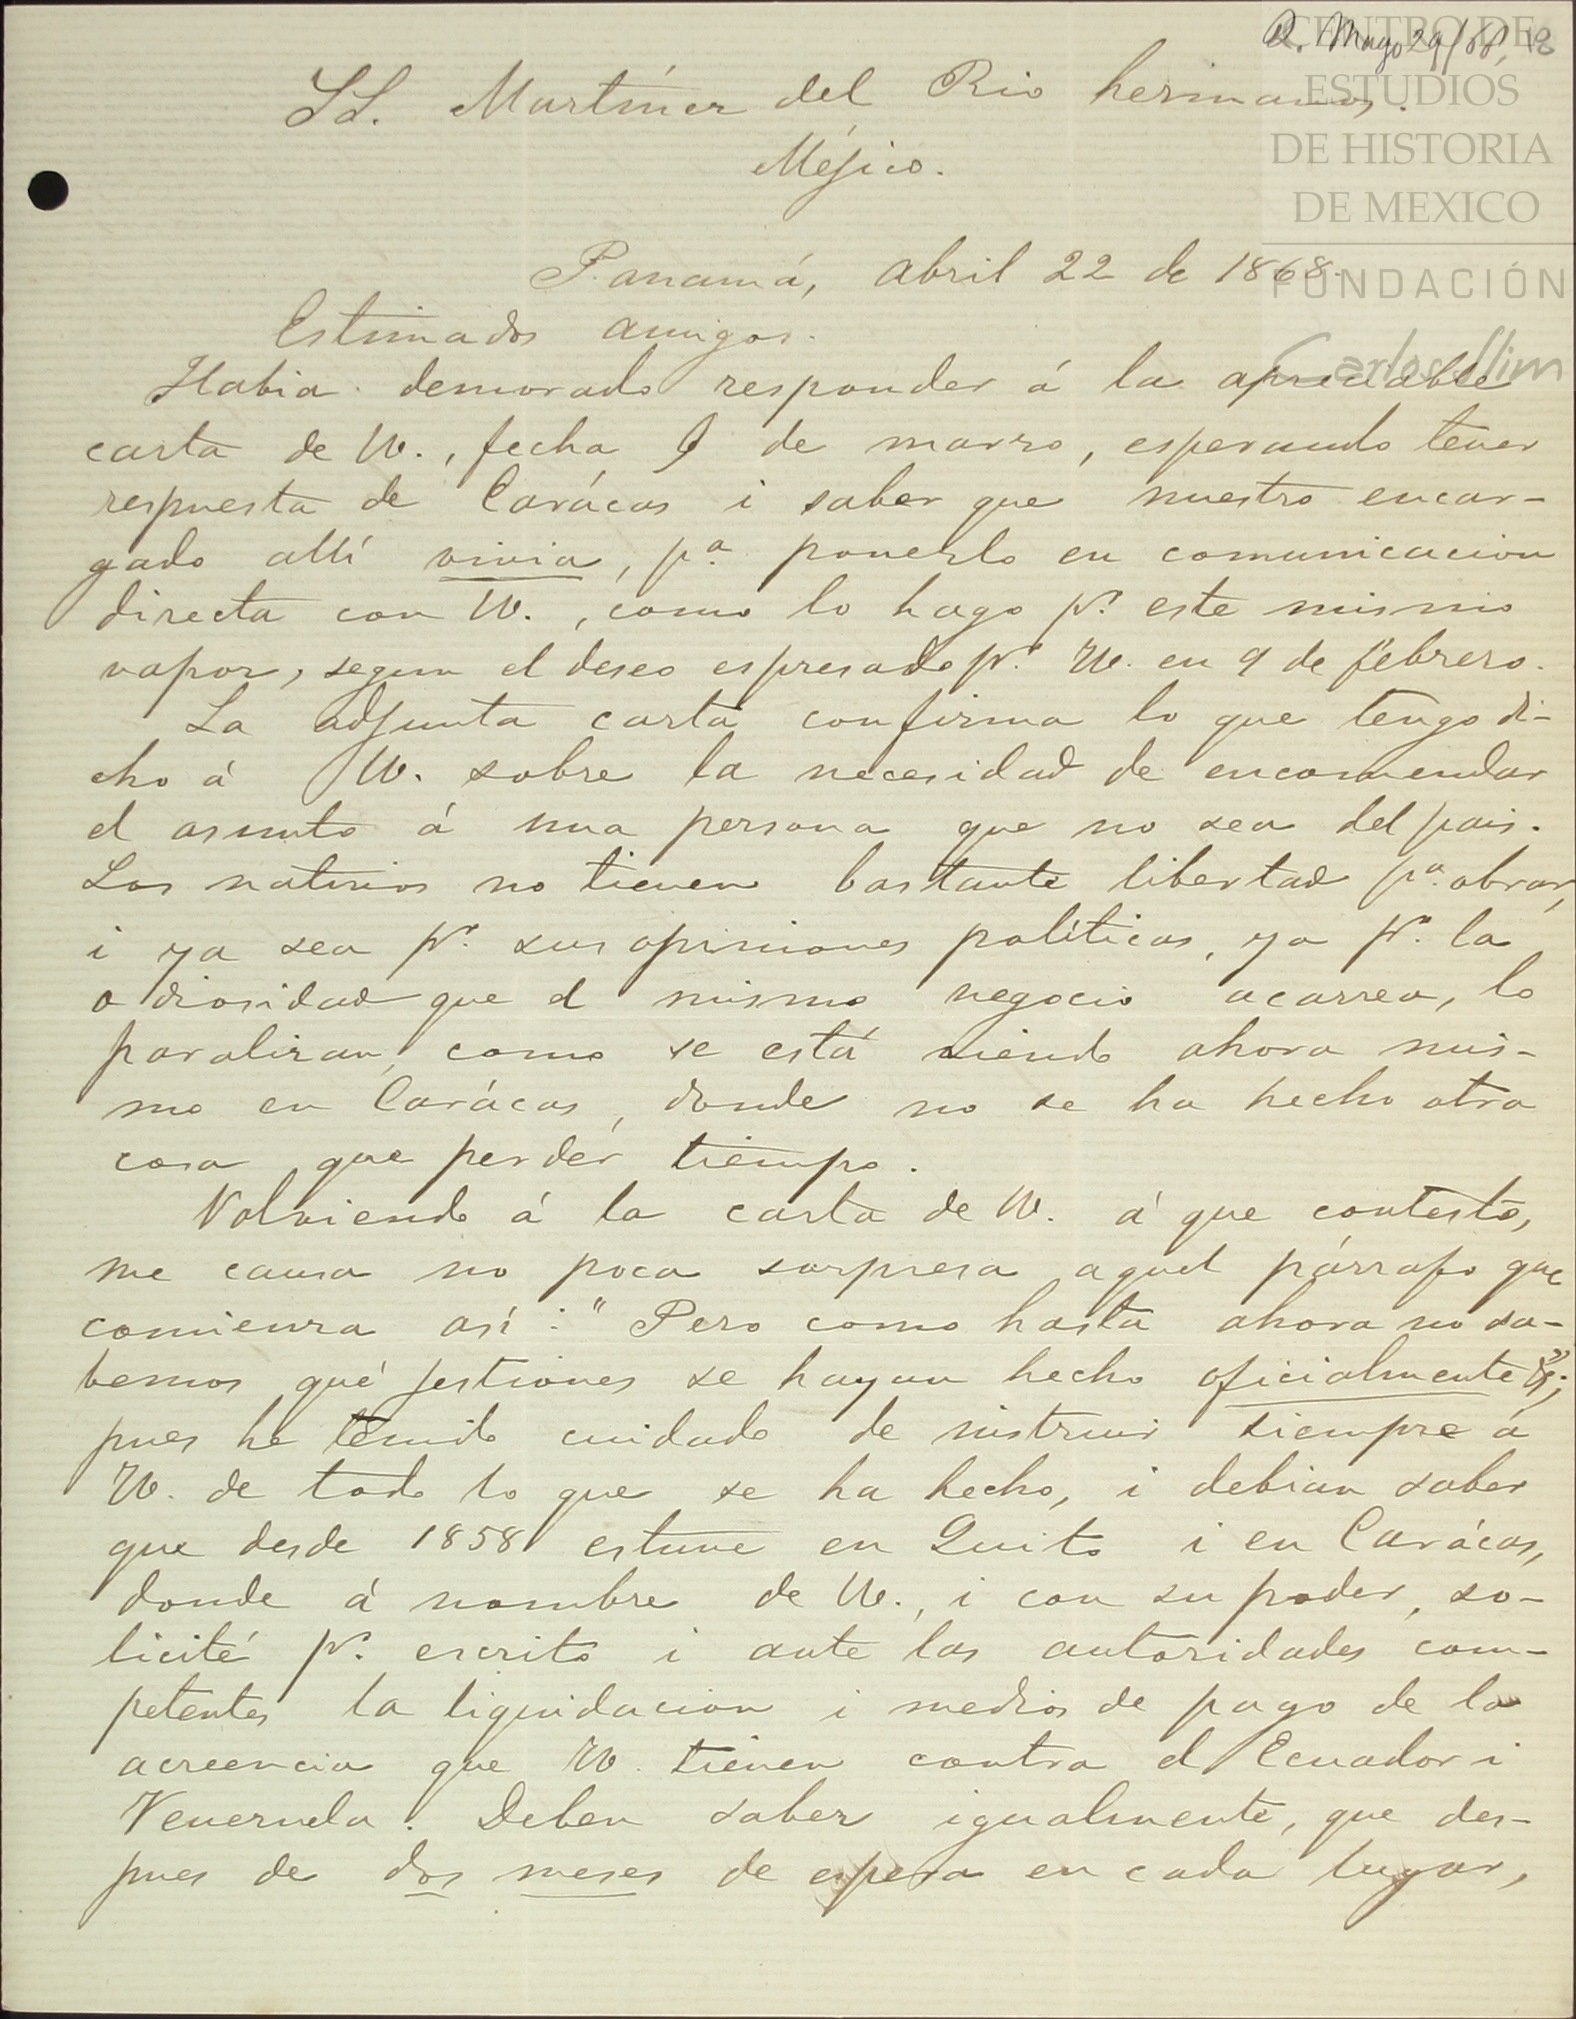 R. Mayo 29/68.
CENTRO DE
ESTUDIOS
DE HISTORIA
DE MEXICO
FUNDACIÓN
Carlos Slim
SS. Martínez del Rio hermanos.
Méjico.
Panamá, abril 22 de 1868.
Estimados amigos.
Habia demorado responder á la apreciable
carta de U., fecha 9 de marzo, esperando tener
respuesta de Carácas i saber que nuestro encar-
gado allí vivia, pa. ponerlo en comunicacion
directa con U., como lo hago pr. este mismo
vapor, segun el deseo espresado pr. U. en 9 de febrero.
La adjunta carta confirma lo que tengo di-
cho á U. sobre la necesidad de encomendar
el asunto á una persona que no sea del pais.
Los nativos no tienen bastante libertad pa. obrar,
i ya sea pr. sus opiniones políticas, ya pr. la
odiosidad que el mismo negocio acarrea, lo
paralizan, como se está viendo ahora mis-
mo en Carácas, donde no se ha hecho otra
cosa que perder tiempo.
Volviendo á la carta de U. á que contesto,
me causa no poca sorpresa aquel párrafo que
comienza así: "Pero como hasta ahora no sa-
bemos qué jestiones se hayan hecho oficialmente &";
pues he tenido cuidado de instruir siempre á
U. de todo lo que se ha hecho, i debian saber
que desde 1858 estuve en Quito i en Carácas,
donde á nombre de U., i con su poder, so-
licité pr. escrito i ante las autoridades com-
petentes la liquidacion i medios de pago de la
acreencia que U. tienen contra el Ecuador i
Venezuela. Deben saber igualmente, que des-
pues de dos meses de espera en cada lugar,